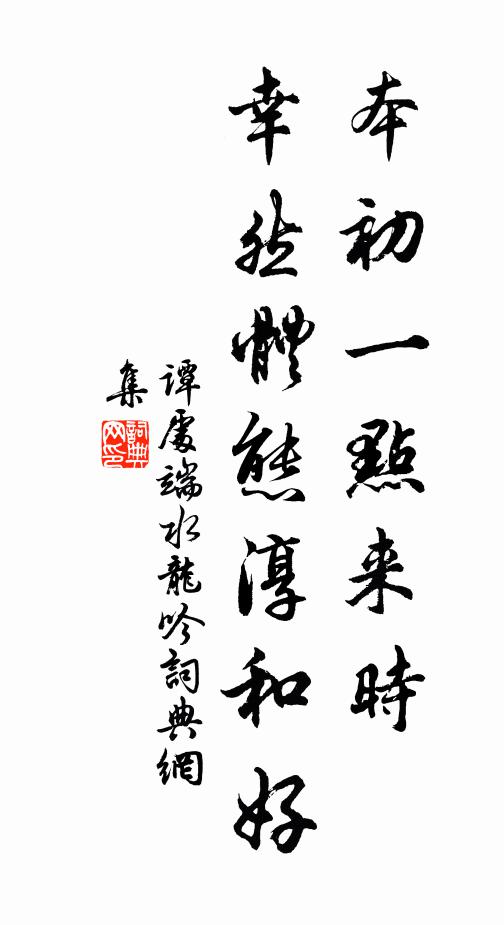 本初一點来時
幸然體態淳和好
譚處端水龍吟詞典網
集
詞典
网印